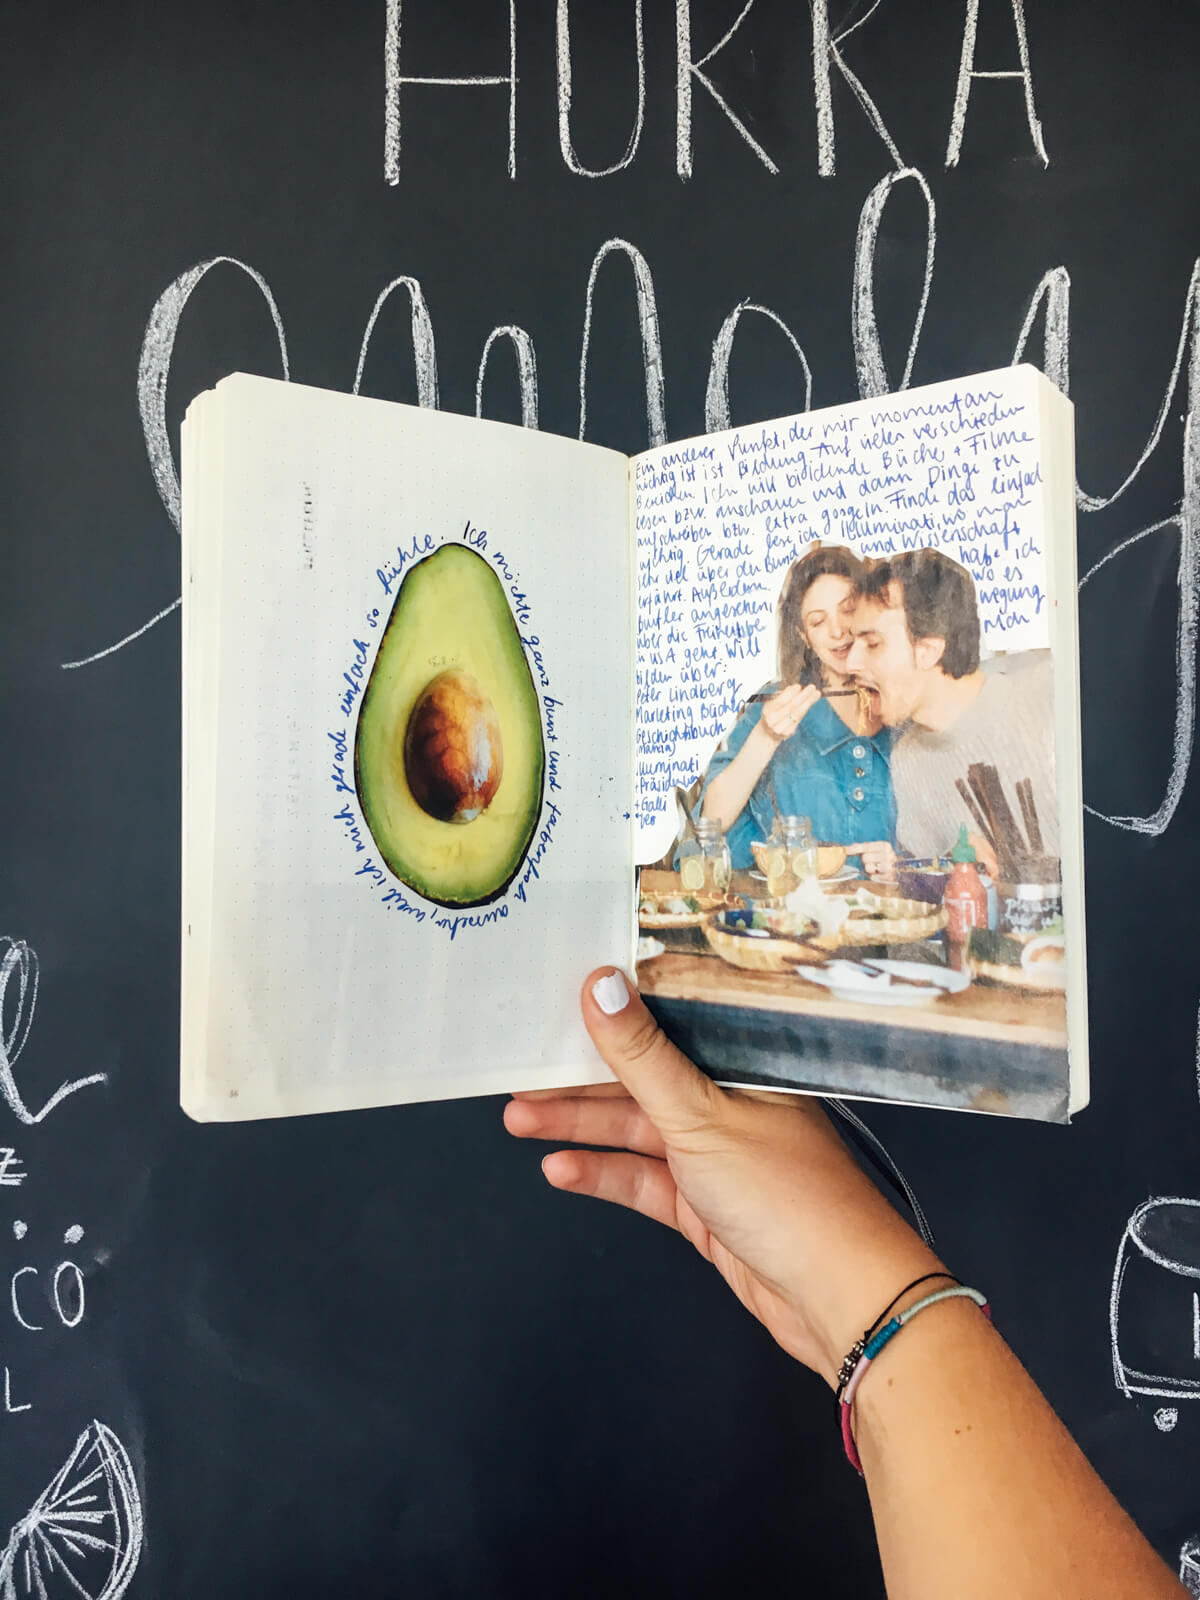 HURRA
Ich möchte ganz bunt und farbenfroh aussehen, weil ich mich gerade einfach so fühle.
Ein anderer Punkt, der mir momentan
wichtig ist ist Bildung. Auf vielen verschieden
Bereichen. Ich will bildende Bücher + Filme
lesen bzw. anschauen und dann Dinge zu
aufschreiben bzw. extra googeln. Finde das einfach
wichtig. Gerade lese ich Illuminati, wo man
sehr viel über den Bund und Wissenschaft
erfährt. Außerdem habe ich
Butler angesehen, wo es
über die
in USA geht. Will mich
bilden über:
Peter Lindberg
Marketing Bücher
Geschichtsbuch
(Mama)
Illuminati
+ Präsidenten
+ Galli
36
CO
L